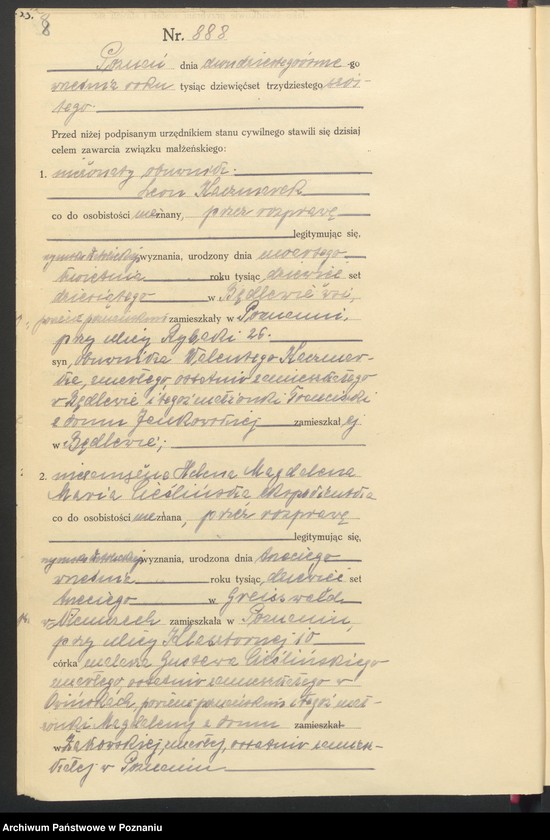 8
Nr. 888
Poznań dnia dwudziestegoósme-go
września roku tysiąc dziewięćset trzydziestego szós-
tego.
Przed niżej podpisanym urzędnikiem stanu cywilnego stawili się dzisiaj
celem zawarcia związku małżeńskiego:
1. nieżonaty obuwnik
Leon Kaczmarek
co do osobistości nieznany, przez rozprawę
legitymując się,
wyznania, urodzony dnia czwartego
kwietnia roku tysiąc dziewięć set
dziesiątego w Będlewie
zamieszkały w Poznaniu,
przy ulicy Rybaki 26.
syn, obuwnika Walentego Kaczmar-
ka, zmarłego, ostatnio zamieszkałego
w Będlewie i tegoż małżonki Franciszki
z domu zamieszkał ej
w Będlewie;
2. niezamężna Helena Magdalena
Maria Cieślińska ekspedientka
co do osobistości nieznana, przez rozprawę
legitymując się,
wyznania, urodzona dnia trzeciego
września roku tysiąc dziewięć set
trzeciego w Greifswald
w Niemczech zamieszkała w Poznaniu,
przy ulicy Klasztornej 10
córka malarza Gustawa Cieślińskiego
zmarłego, ostatnio zamieszkałego w
Owińskach, powiat poznański i tegoż mał-
żonki Magdaleny z domu zamieszkał
w Żakowskiej, zmarłej, ostatnio zamiesz-
kałej w Poznaniu
Archiwum Państwowe w Poznaniu